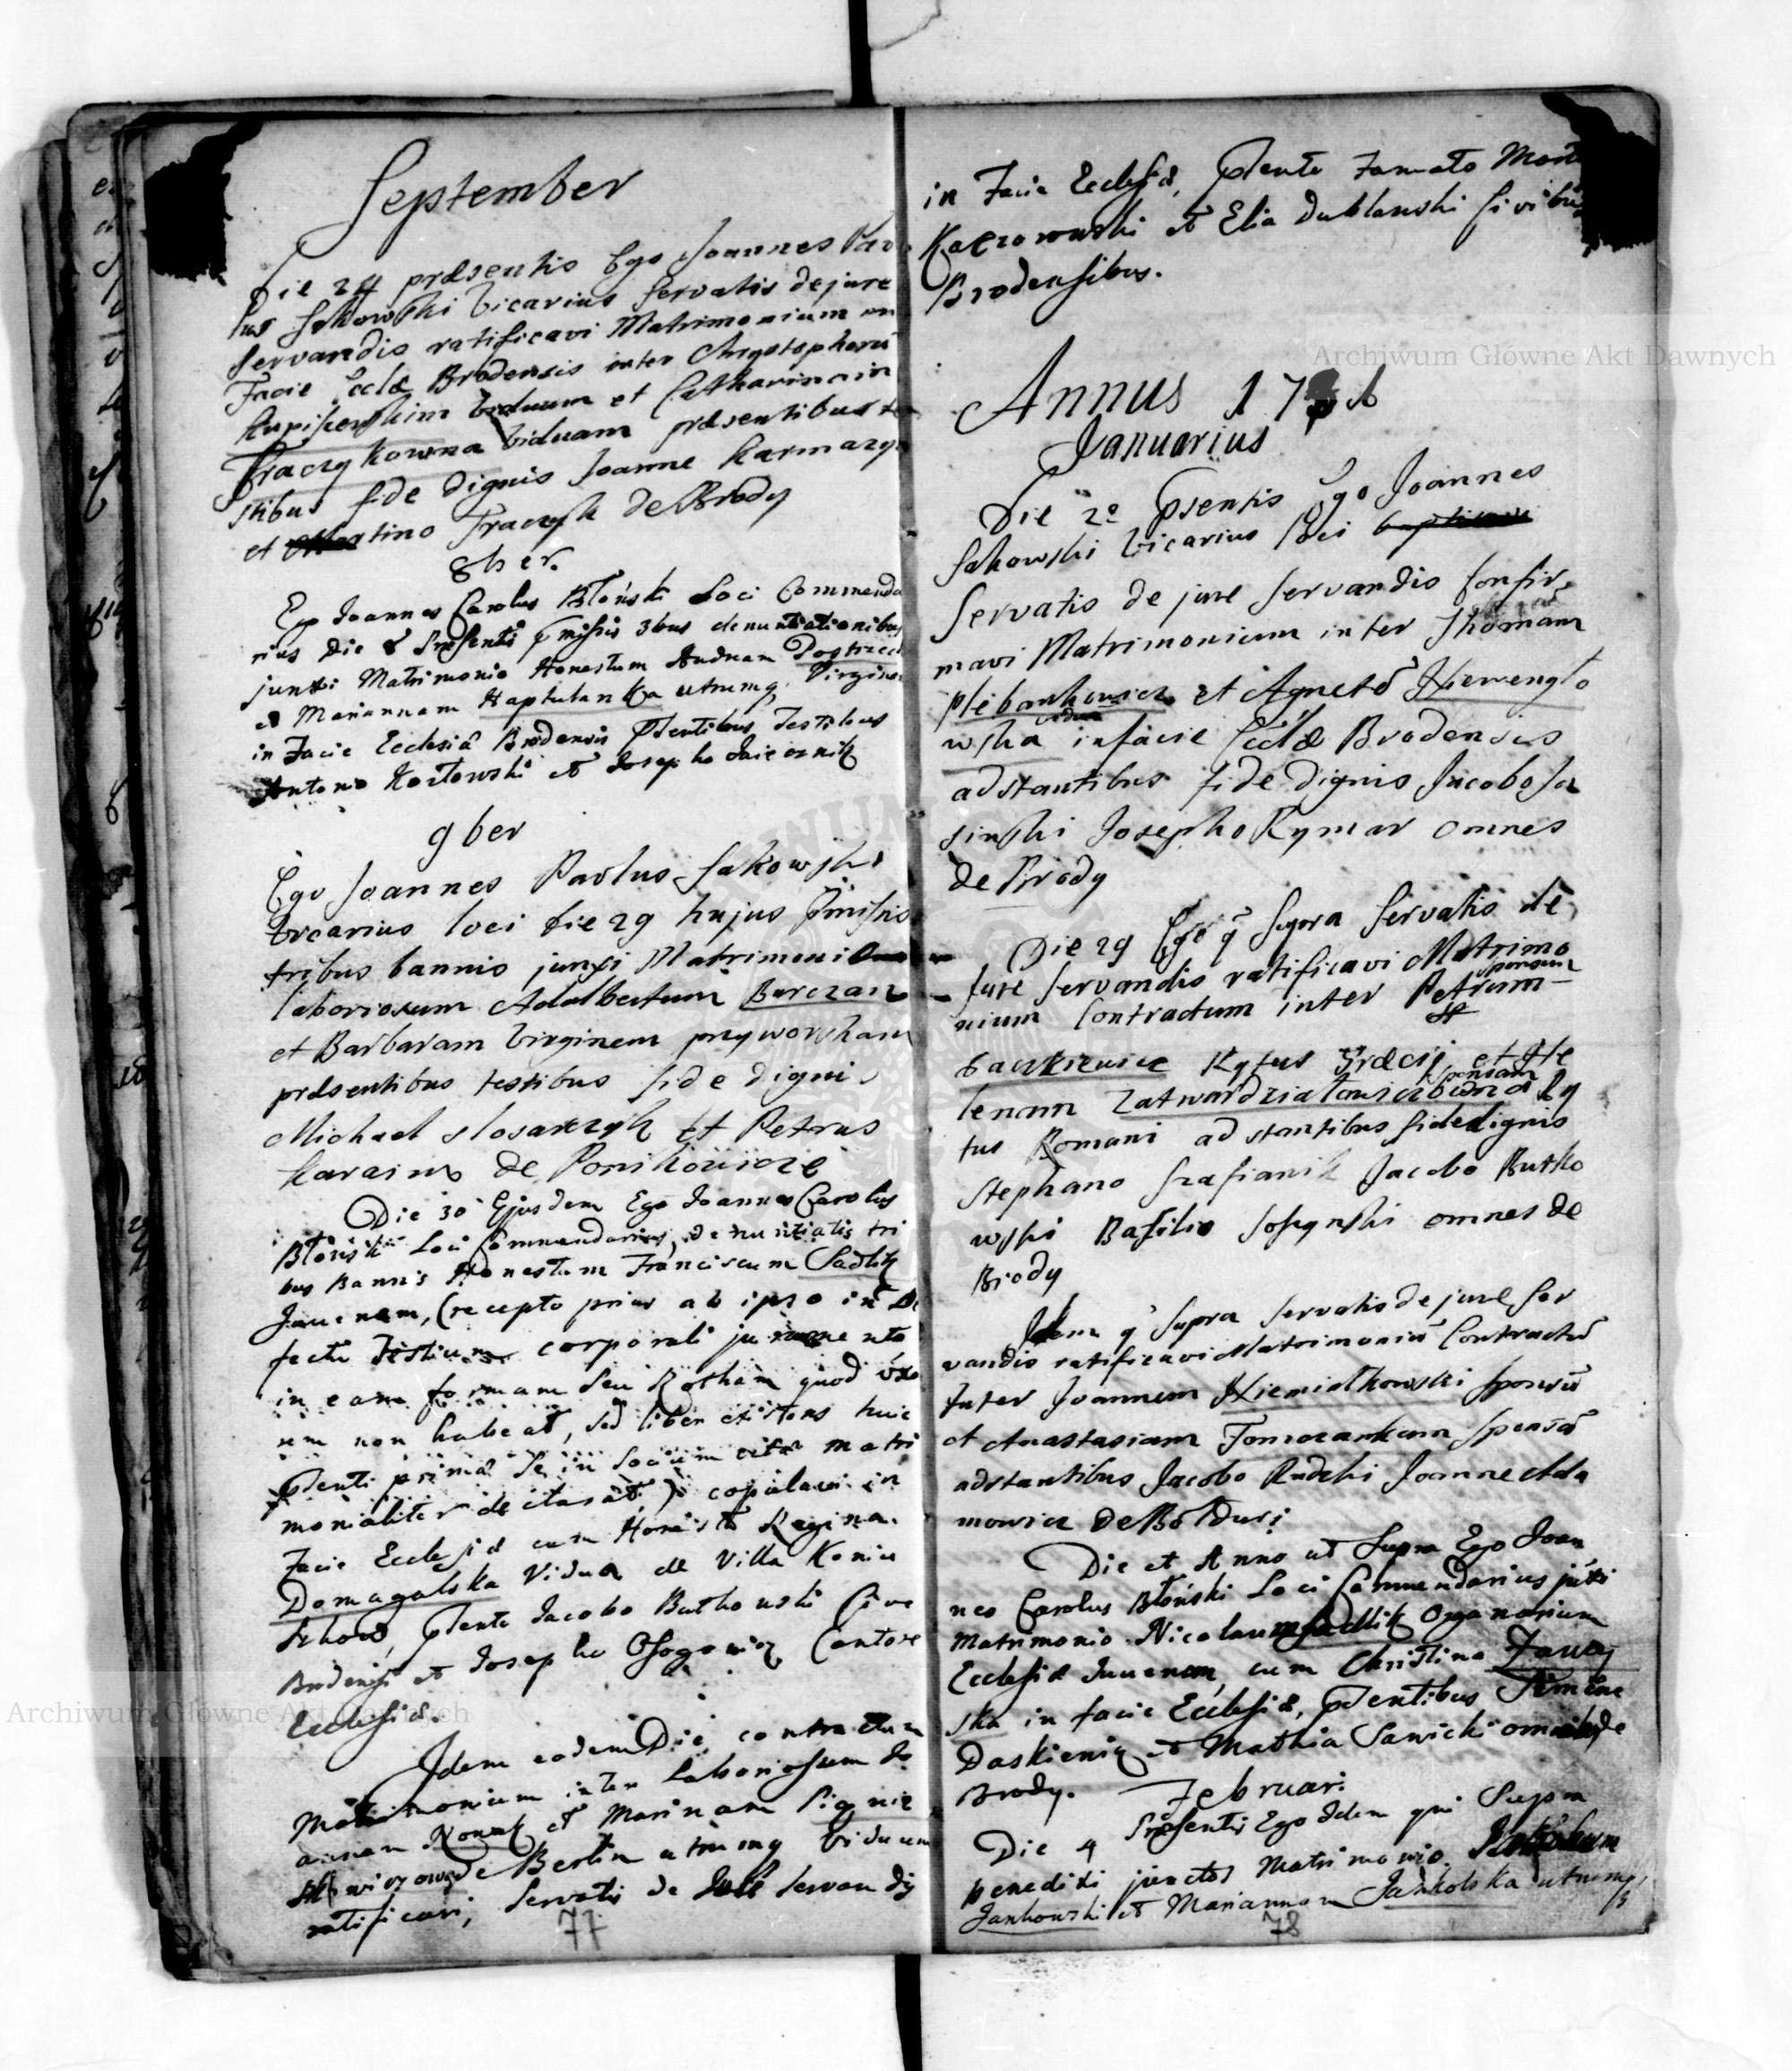 September
Die 24 præsentis Ego Joannes Pau
lus Sakowski Vicarius servatis de jure
servandis ratificavi Matrimonium in
Facie Ecclæ Brodensis inter Chrystopherū
viduum et Catharinam
Traczykowna viduam præsentibus te
stibus fide dignis Joanne Karmazyn
et Martino Traczyk de Brody
8br.
Ego Joannes Carolus Błoński Loci Commenda
rius Die 8 Præsentis pmissis 3bus denuntiationibus
junxi Matrimonio Honestum Andream Postrzech
et Mariannam Haptulanka utrumq. Virginem
in Facie Ecclesiæ Brodensis Pṡentibus Testibus
Antonio Kozłowski et Josepho
9ber
Ego Joannes Paolus Sakowski
Vicarius loci die 29 hujus Pmissis
tribus bannis junxi Matrimonium
laboriosum Adalbertum Barczan
et Barbaram Virginem przyworskam
præsentibus testibus fide dignis
Michael slosarczyk et Petrus
Karaim de Ponikowice
Die 30 Ejusdem Ego Joannes Carolus
Błoński Loci Commendarius, denuntiatis tri
bus Bannis Honestum Franciscum Sadlik
Juvenem, (recepto prius ab ipso in De
fectu Testium corporali juramento
in eam formam seu Rotham quod uxo
rem non habeat, sed liber existens huic
Pṡenti
monialiter ) copulavi in
Facie Ecclesiæ cum Honesta Regina
Domagalska Vidua de Villa Koniu
szkow, Pṡente Jacobo Butkowski Cive
Brodensi et Josepho Ossogowicz Cantore
Ecclesiæ.
Idem eodem Die contractum
Matrimonium inter Laboriosum Jo
annem Nowak et Marinam
de Berlin utrumq viduum
ratificavi, servatis de Jure servandis
77
in Facie Ecclesiæ, Pṡente Famato Mart
Kaczorowski et Elia Dublanski Civibus
Brodensibus.
Annus 17 1
Januarius
Die 2º Pṡentis Ego Joannes
Sakowski Vicarius loci
servatis de jure servandis confir
mavi Matrimonium inter Thomam
plebankowicz et Agnetē
wska vidua in facie Ecclæ Brodensis
adstantibus fide dignis Jacobo Ja
sinski Josepho Rymar omnes
de Brody
Die 29 Ego q̄ supra servatis de
jure servandis ratificavi Matrimo
nium Contractum inter Petrum sponsum
backiewicz Rytus Græci et He
lenam zatwardzialowiczowna sponsam Ry
tus Romani adstantibus fidedignis
Stephano Szafianik Jacobo Butko
wski Basilio omnes de
Brody
Idem q̄ supra servatis de jure ser
vandis ratificavi Matrimoniū Contractū
Inter Joannem Niemiatkowski sponsū
et Anastasiam Tomczankam sponsā
adstantibus Jacobo Rudzki Joanne Ada
mowicz de Bołduri
Die et Anno ut supra Ego Joan
nes Carolus Błoński Loci Commendarius juxi
Matrimonio Nicolaum Sadlik Organarium
Ecclesiæ Juvenem, cum Christina Zawaj
ska in facie Ecclesiæ, Pṡentibus Simeone
Daskiewicz et Mathia Sawicki omnibus de
Brody.
Februari
Die 4 Præsentis Ego Idem qui Supra
benedixi junctos Matrimonio
Jankowski et Mariannam Jankolska utrumq
78
Archiwum Główne Akt Dawnych
Archiwum Główne Akt Dawnych